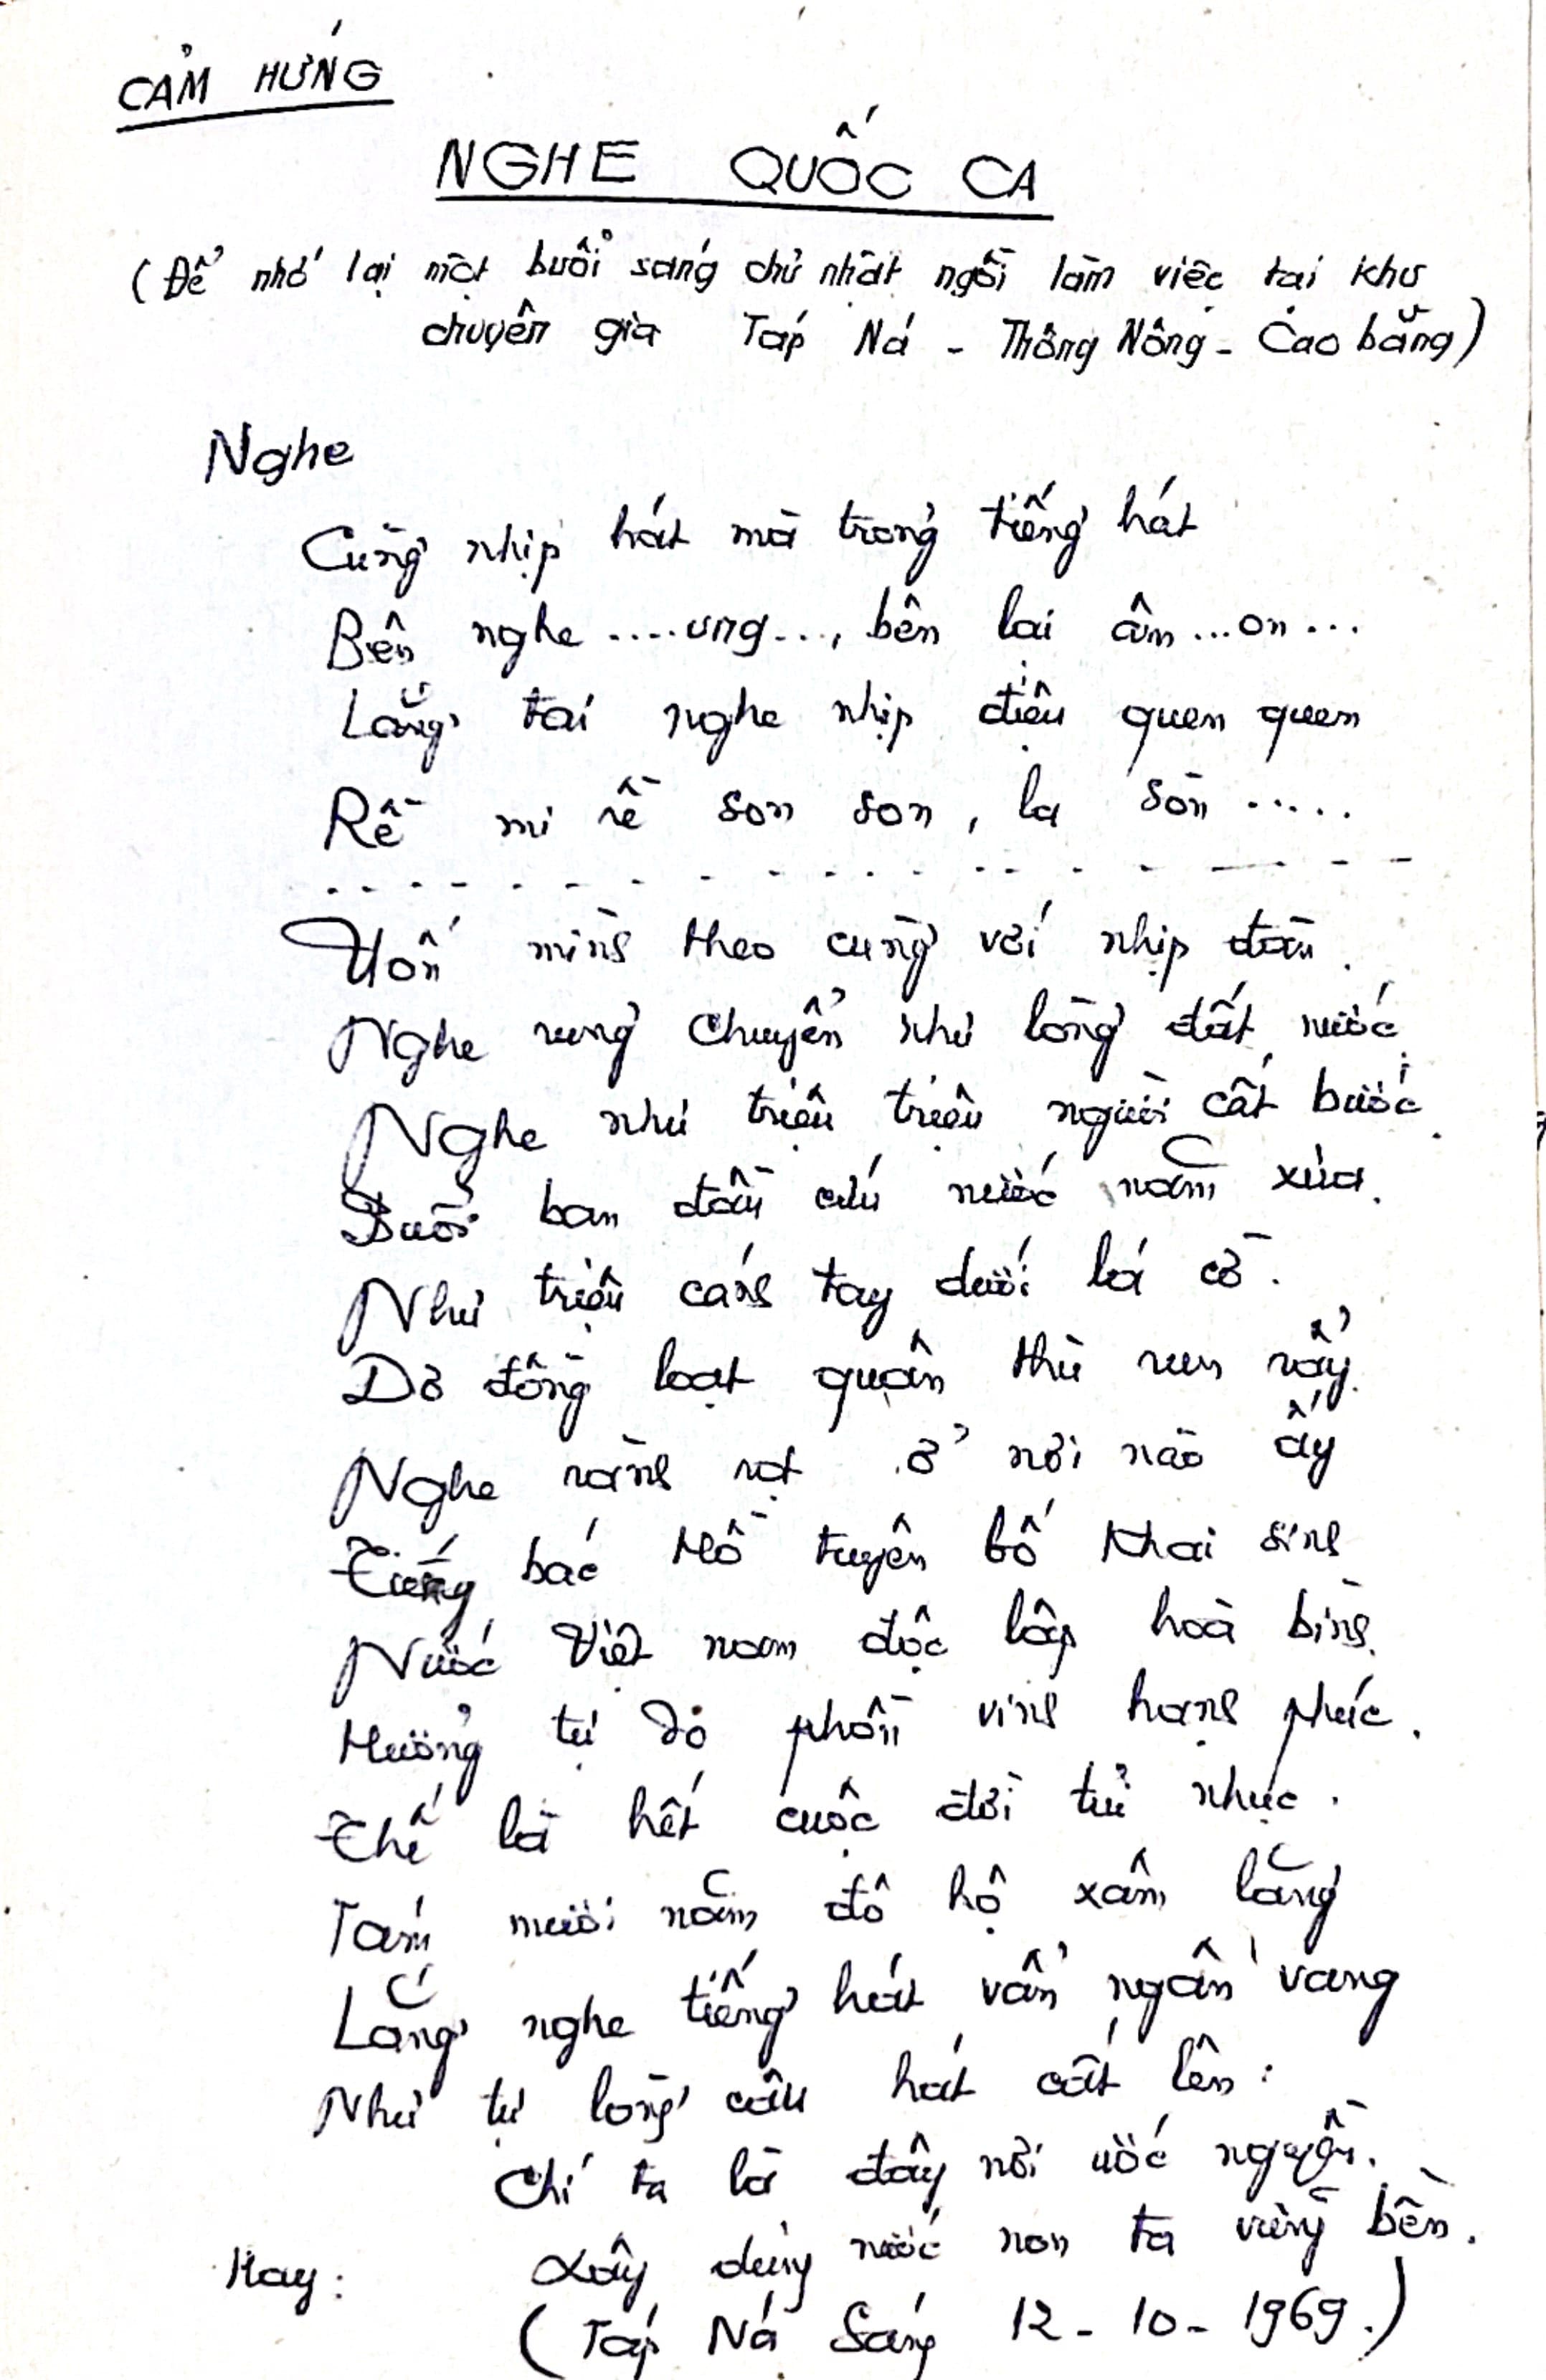 CẢM HỨNG
NGHE QUỐC CA
(Để nhớ lại một buổi sáng chủ nhật ngồi làm việc tại khu
chuyên gia Táp Ná - Thông Nông - Cao bằng)
Nghe
Cùng nhịp hát mà trong tiếng hát
Bên nghe ....ưng..., bên lai âm...on...
Lắng tai nghe nhịp điệu quen quen
Rề mi rề son son, la sòn .....
Uốn mình theo cùng với nhịp đàn.
Nghe rung chuyển như lòng đất nước.
Nghe như triệu triệu người cất bước.
Buổi ban đầu cứu nước năm xưa.
Như triệu cánh tay dưới lá cờ.
Dơ đồng loạt quân thù run rẩy.
Nghe rành rọt ở nơi nào ấy
Tiếng bác Hồ tuyên bố khai sinh
Nước Việt nam độc lập hoà bình.
Hưởng tự do phồn vinh hạnh phúc.
Thế là hết cuộc đời tủi nhục.
Tám mươi năm đô hộ xâm lăng
Lắng nghe tiếng hát vẫn ngân vang
Như tự lòng câu hát cất lên:
Chí ta là đây nơi ước nguyền.
Hay: Xây dựng nước non ta vững bền.
(Táp Ná Sáng 12-10-1969.)